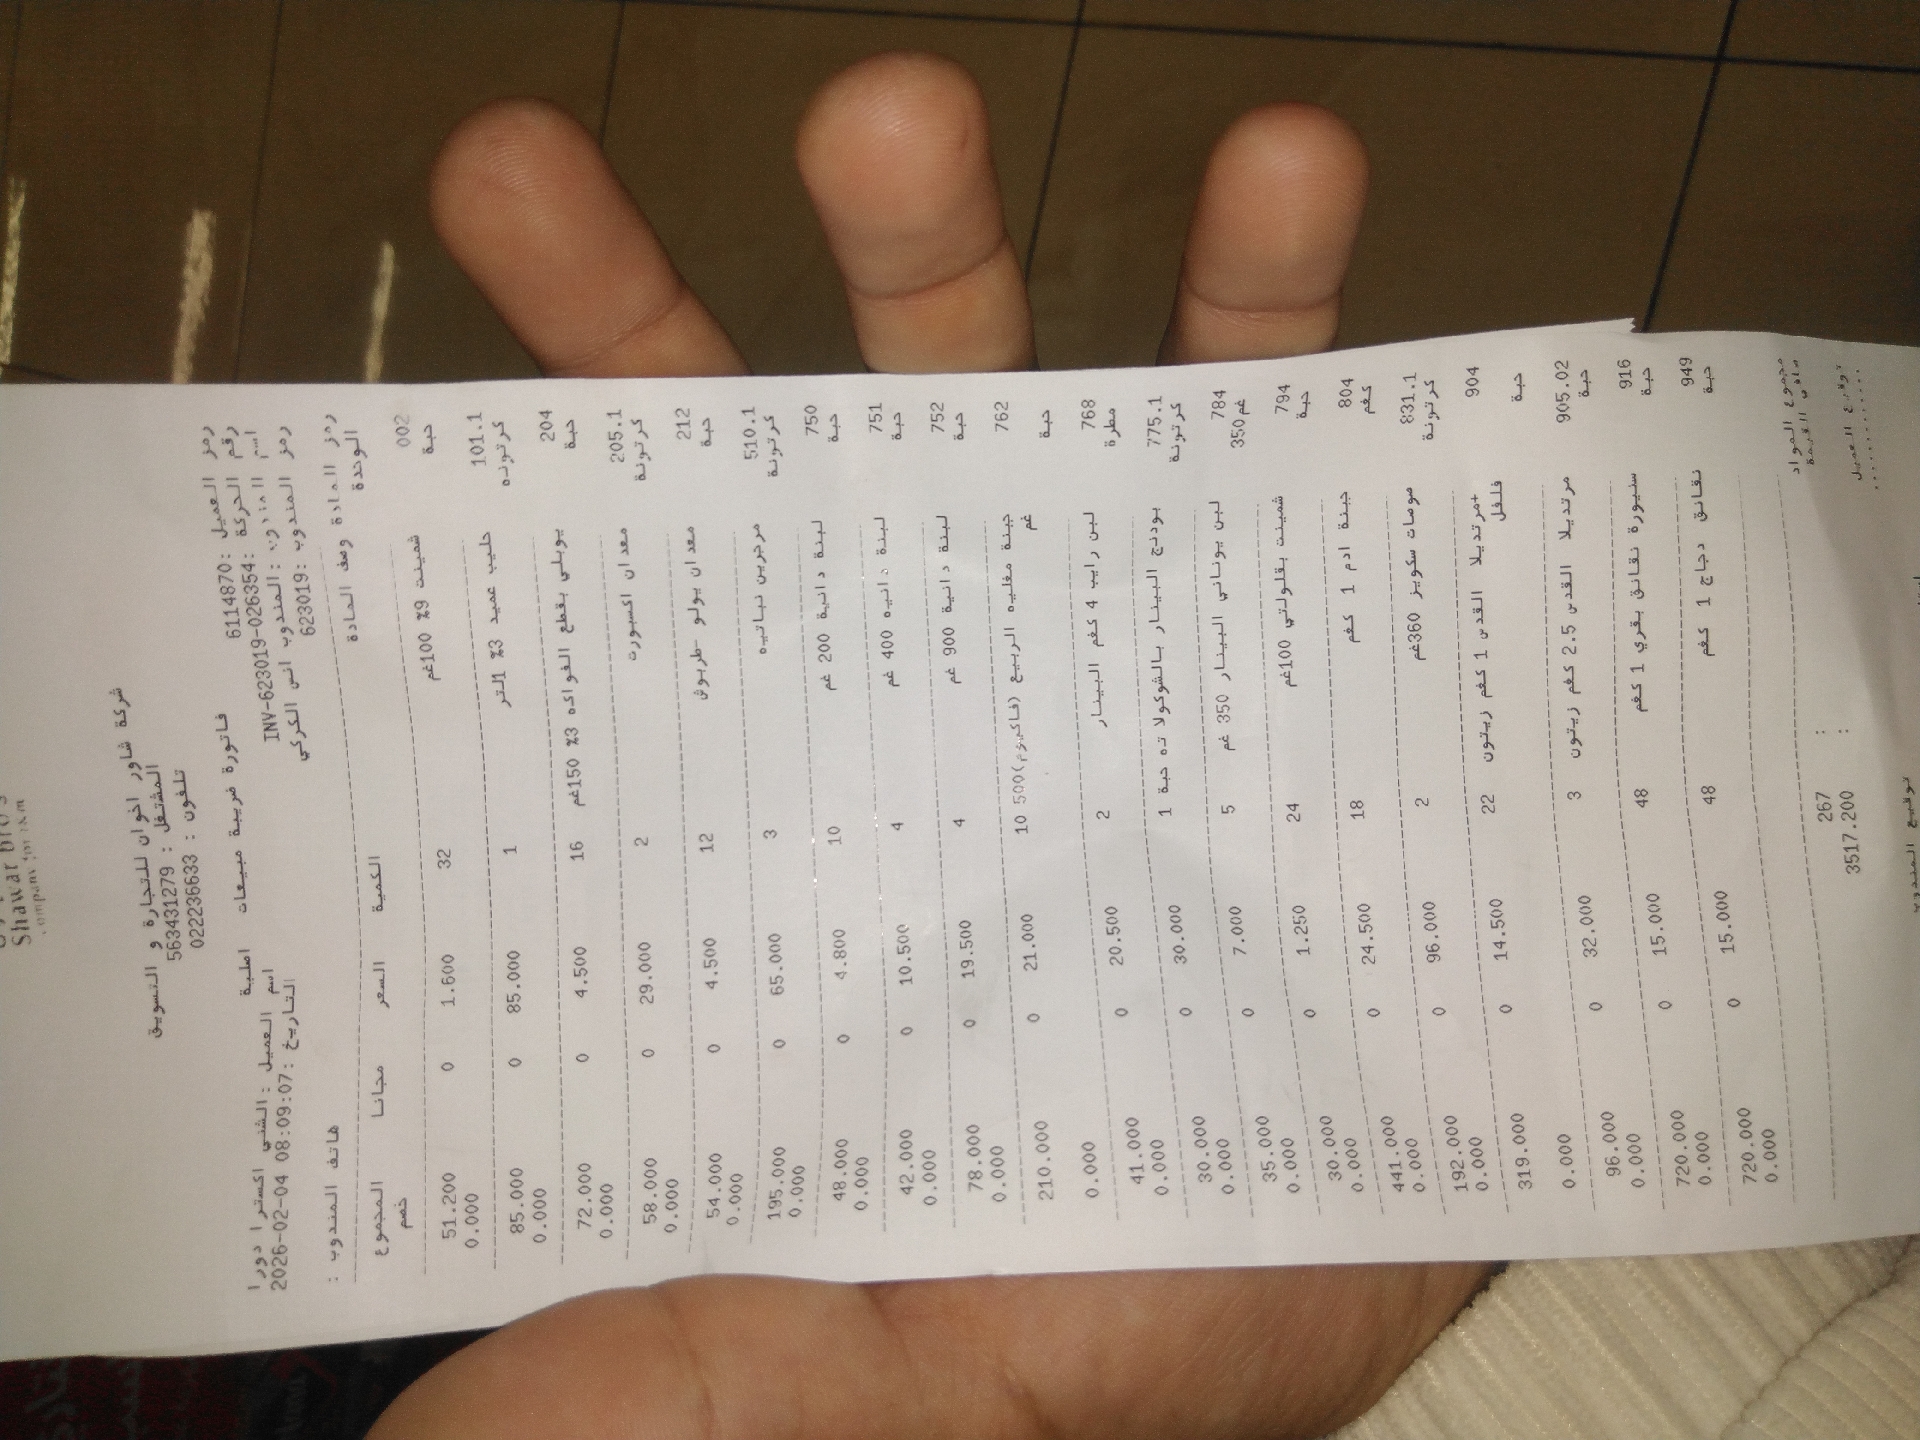 Shawar Bros
شركة شاور اخوان للتجارة و التسويق
المشتغل : 563431279
تلفون : 022236633
فاتورة ضريبة مبيعات اصلية
رمز العميل :6114870 اسم العميل :الشني اكسترا دورا
رقم الحركة :INV-623019-026354 التاريخ :2026-02-04 08:09:07
اسم المندوب :المندوب انس الكركي
رمز المندوب :623019 هاتف المندوب :
رمز المادة وصف المادة
الوحدة الكمية السعر مجانا المجموع
خصم
002 شمينت 9% 100غم
حبة 32 1.600 0 51.200
0.000
101.1 حليب عميد 3% 1لتر
كرتونه 1 85.000 0 85.000
0.000
204 يوبلي بقطع الفواكه 3% 150غم
حبة 16 4.500 0 72.000
0.000
205.1 معدان اكسبورت
كرتونة 2 29.000 0 58.000
0.000
212 معدان يولو -طربوش
حبة 12 4.500 0 54.000
0.000
510.1 مرجرين نباتيه
كرتونة 3 65.000 0 195.000
0.000
750 لبنة دانية 200 غم
حبة 10 4.800 0 48.000
0.000
751 لبنة دانيه 400 غم
حبة 4 10.500 0 42.000
0.000
752 لبنة دانية 900 غم
حبة 4 19.500 0 78.000
0.000
762 جبنة مغليه الربيع (فاكيوم)500
غم
حبة 10 21.000 0 210.000
0.000
768 لبن رايب 4 كغم البينار
مطرة 2 20.500 0 41.000
0.000
775.1 بودنج البينار بالشوكولا ته حبة
كرتونة 1 30.000 0 30.000
0.000
784 لبن يوناني البينار 350 غم
350غم 5 7.000 0 35.000
0.000
794 شمينت بقلولتي 100غم
حبة 24 1.250 0 30.000
0.000
804 جبنة ادم 1 كغم
كغم 18 24.500 0 441.000
0.000
831.1 مومات سكويز 360غم
كرتونة 2 96.000 0 192.000
0.000
904 مرتديلا القدس 1 كغم زيتون+
فلفل
حبة 22 14.500 0 319.000
0.000
905.02 مرتديلا القدس 2.5 كغم زيتون
حبة 3 32.000 0 96.000
0.000
916 سنيورة نقانق بقري 1 كغم
حبة 48 15.000 0 720.000
0.000
949 نقانق دجاج 1 كغم
حبة 48 15.000 0 720.000
0.000
مجموع المواد : 267
صافي القيمة : 3517.200
توقيع العميل
توقيع المندوب